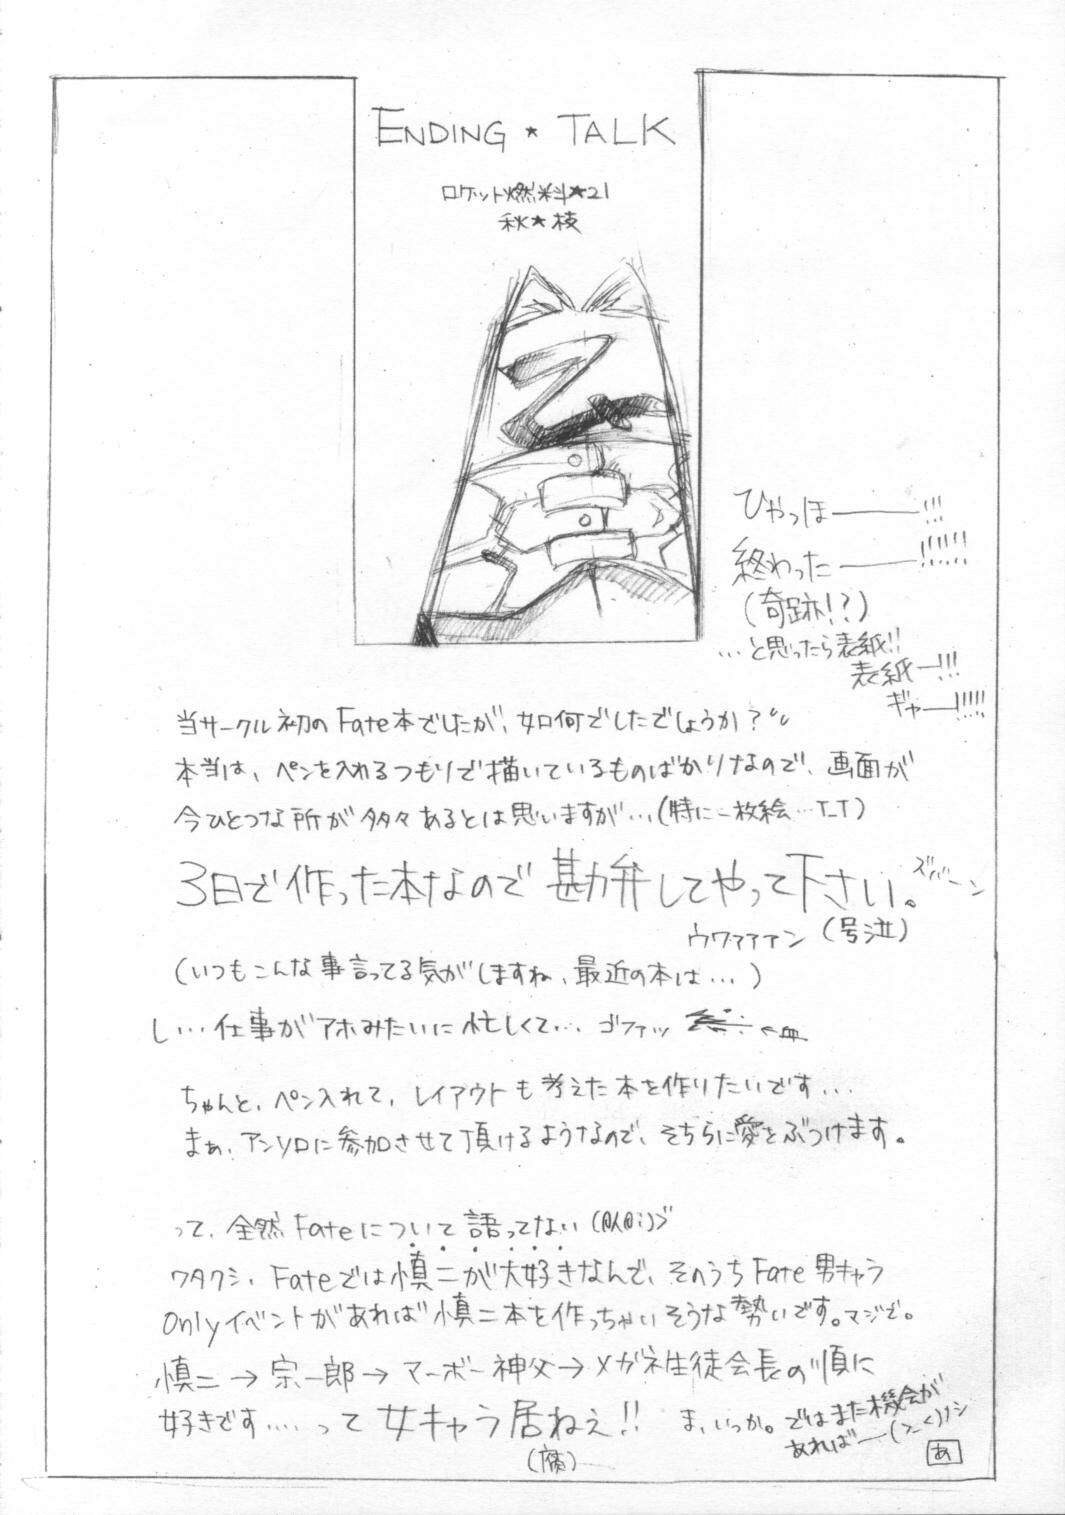 ENDING ★ TALK
ロケット燃料★21
秋★枝
ひやっほ―――!!!
終わった―――!!!!!!
(奇跡!?)
…と思ったら表紙!!
表紙―!!!
ギャ―!!!!!
当サークル初のFate本でしたが、如何でしたでしょうか?
本当は、ペンを入れるつもりで描いているものばかりなので、画面が
今ひとつな所が多々あるとは思いますが…(特に一枚絵…T_T)
3日で作った本なので勘弁してやって下さい。
ズバーン
ウワァァァン (号泣)
(いつもこんな事言ってる気がしますね、最近の本は…)
し…仕事がアホみたいに忙しくて… ゴファッ ←血
ちゃんと、ペン入れて、レイアウトも考えた本を作りたいです…
まぁ、アンソロに参加させて頂けるようなので、そちらに愛をぶつけます。
って、全然Fateについて語ってない
ワタクシ、Fateでは慎二が大好きなんで、そのうちFate男キャラ
Onlyイベントがあれば慎二本を作っちゃいそうな勢いです。マジで。
慎二→宗一郎→マーボー神父→メガネ生徒会長の順に
好きです…. って女キャラ居ねぇ!! ま、いっか。ではまた機会が
あれば―(>_<)ノシ
(腐)
あ